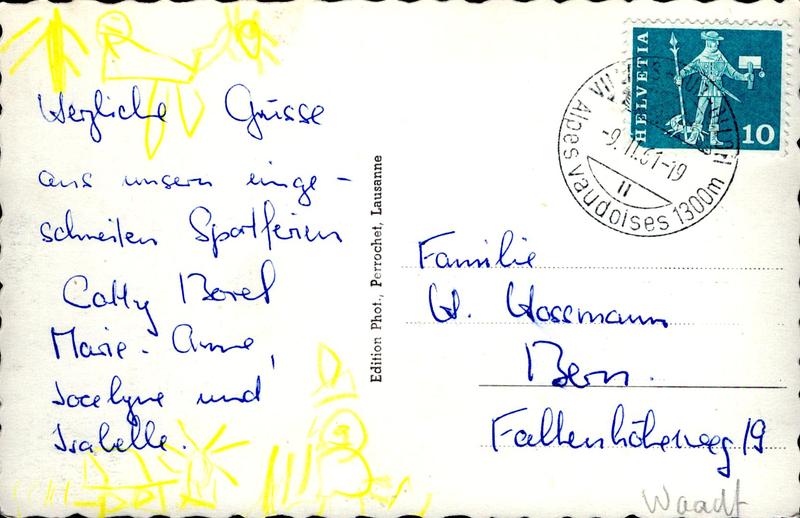 Herzliche Grüsse
aus unsern einge-
schneiten Sportferien
Catty Borel
Marie-Anne,
Jocelyne und
Isabelle.
Edition Phot. Perrochet, Lausanne
HELVETIA
10
VILLARS
-9.11.61-19
II
Alpes vaudoises 1300m
Familie
W. Hossmann
Bern.
Falkenhöheweg 19
Waadt